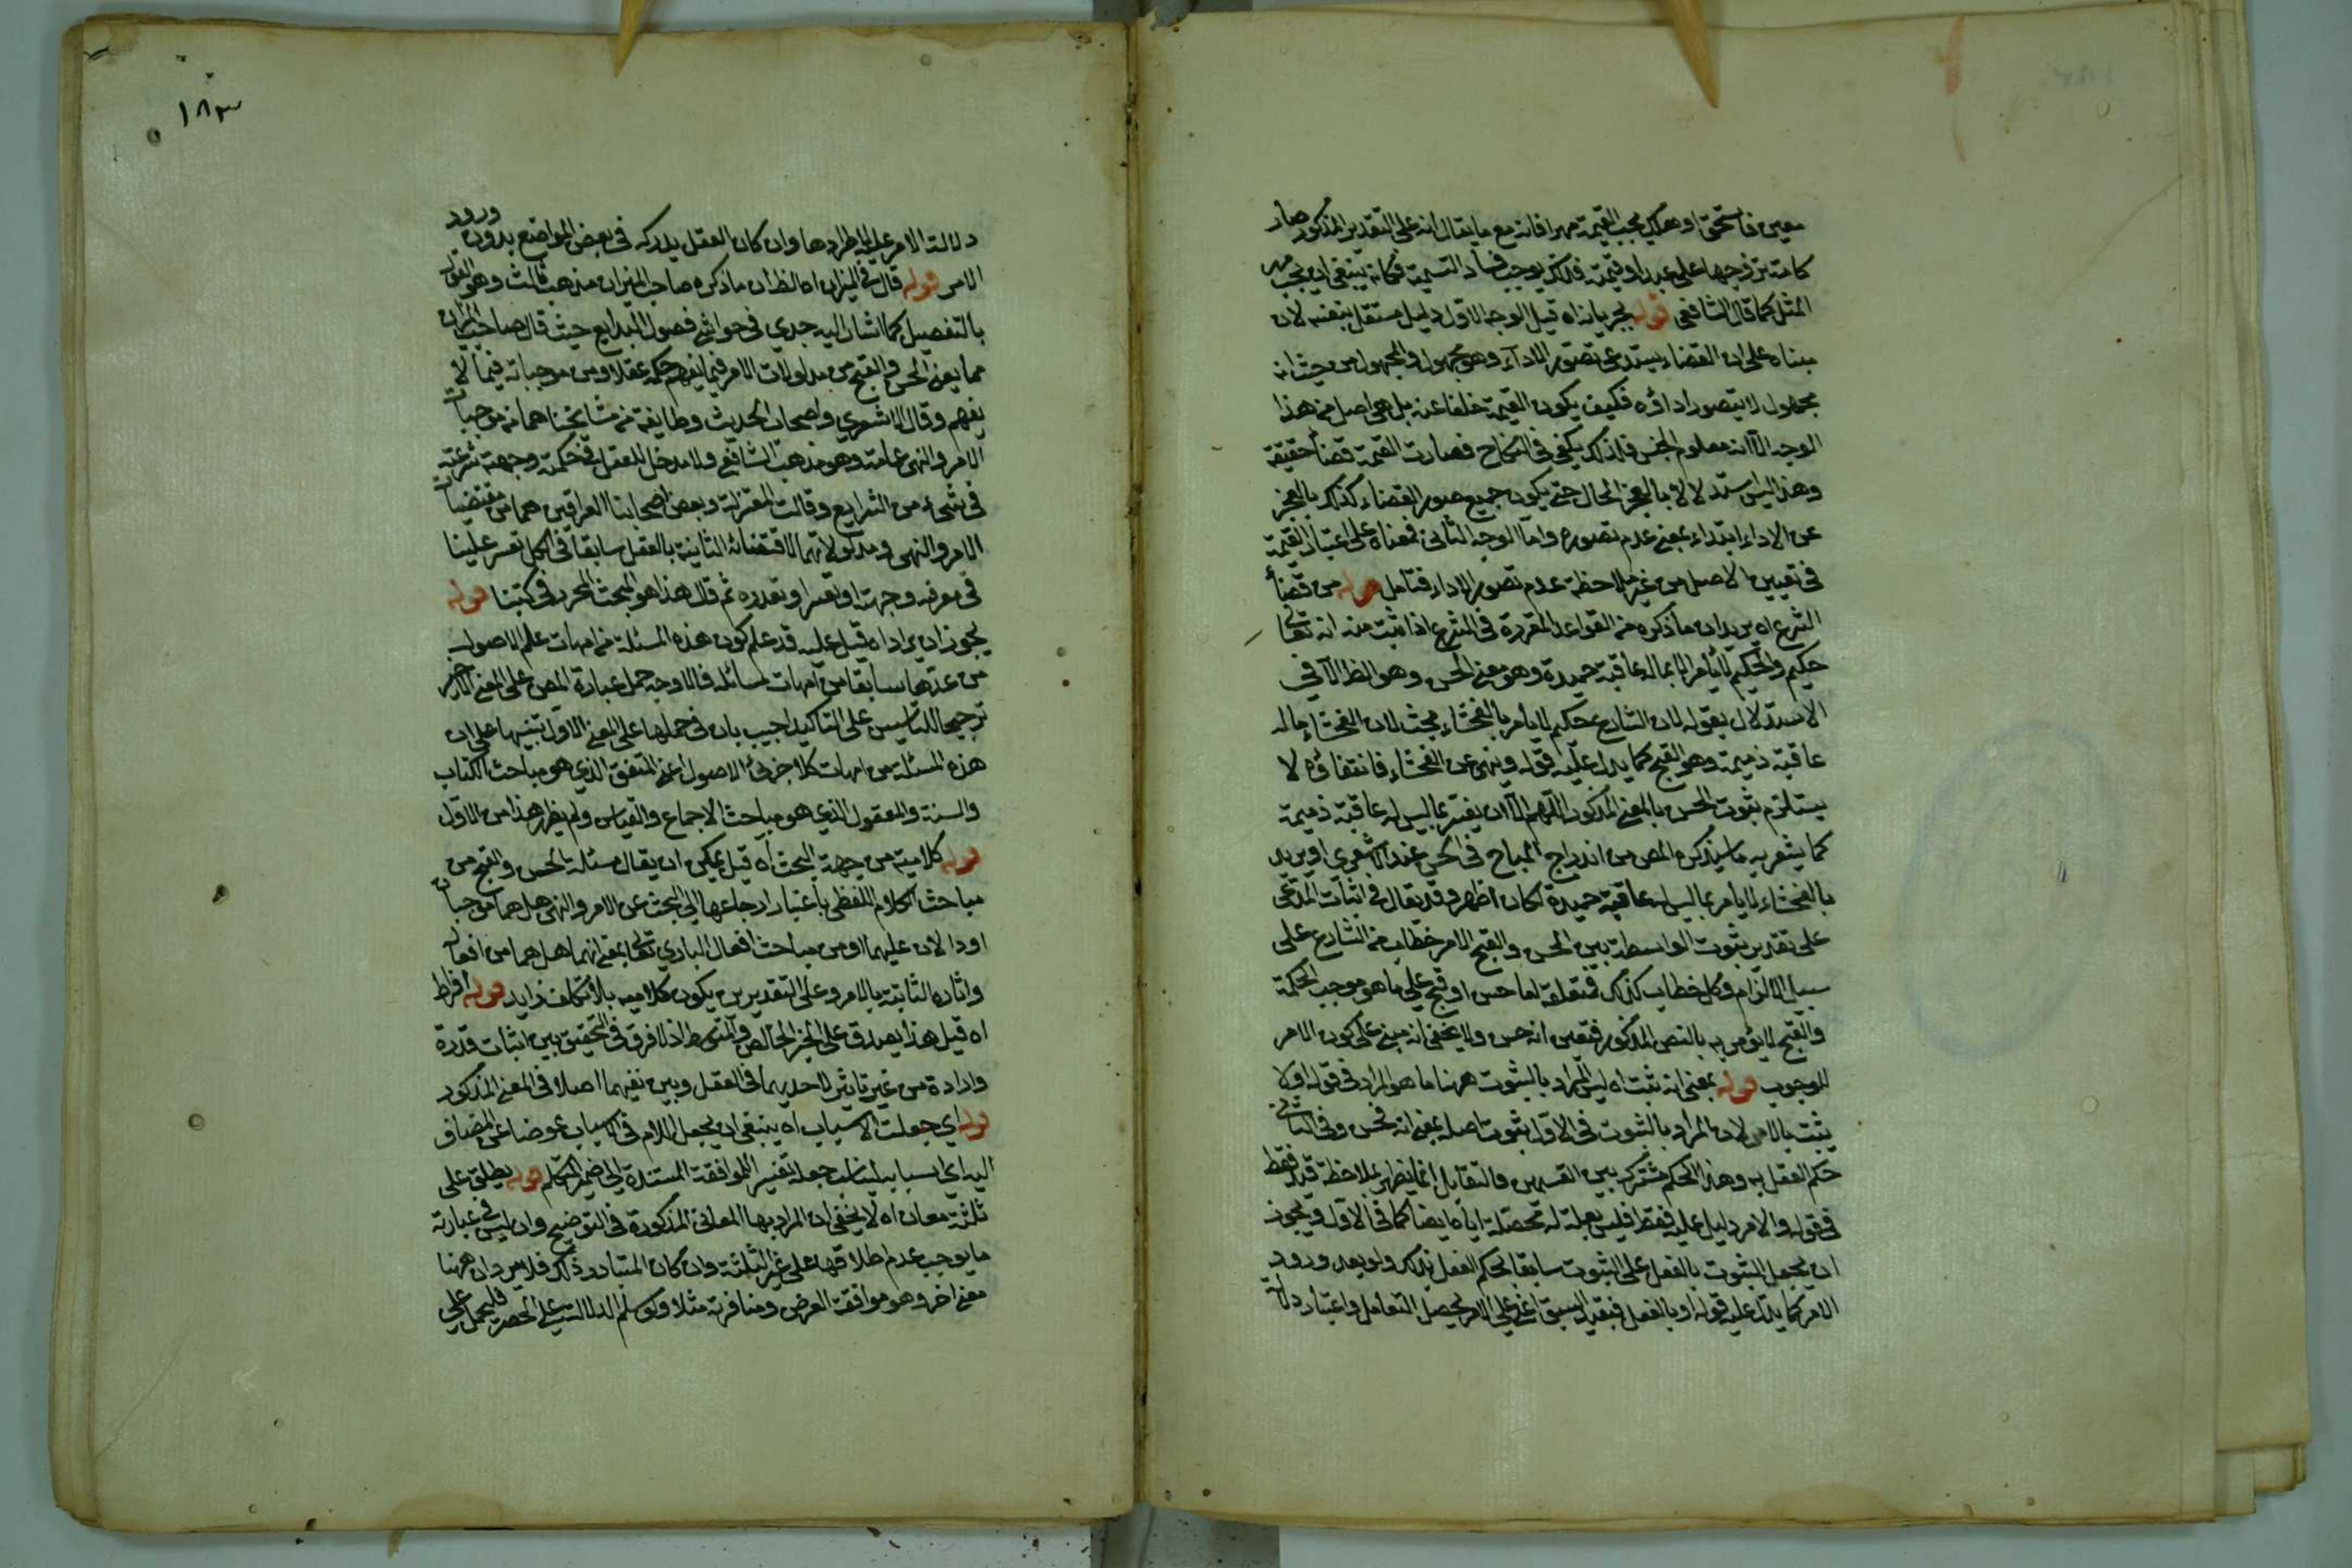 معين فاستحق او هلك يجب القيمة مهرا فانه مع ما يقال انه على التقدير المذكور صار
كانه تزوجها على عبد او قيمة فذلك يوجب فساد التسمية فكانه ينبغي ان يجب مهر
المثل كما قال الشافعي قوله بجريانه اه قيل الوجه الاول دليل مستقل بنفسه لان
مبناه على ان القضاء يستدعي تصور الاداء وهو مجهول والمجهول من حيث انه
مجهول لا يتصور اداؤه فكيف يكون القيمة خلفا عنه بل هي اصل من هذا
الوجه الا انه معلوم الجنس فلذلك يكفي في النكاح فصارت القيمة قضاء حقيقة
وهذا ليس استدلالا بالعجز الحال حتى يكون جميع صور القضاء كذلك بالعجز
عن الاداء ابتداء بمعنى عدم تصوره واما الوجه الثاني فمعناه على اعتبار القيمة
في تعيين الاصل من غير ملاحظة عدم تصور الاداء فتامل قوله من قضاء
الشرع اه يريد ان ما ذكره من القواعد المقررة في الشرع اذا ثبت منه انه تعالى
حكيم والحكيم لا يأمر الا بماله عاقبة حميدة وهو معنى الحسن وهو الظ الا في
الاستدلال بقوله لان الشارع حكيم لا يأمر بالفحشاء بحث لان الفحشاء ماله
عاقبة ذميمة وهو القبح كما يدل عليه قوله وينهى عن الفحشاء فانتفاؤه لا
يستلزم ثبوت الحسن بالمعنى المذكور اللهم الا ان يفسر بما ليس له عاقبة ذميمة
كما يشعر به ما سيذكره المص من اندراج المباح في الحسن عند الاشعري او يريد
بالفحشاء لا يأمر بما ليس له عاقبة حميدة لكان اظهر وقد يقال في اثبات المدعى
على تقدير ثبوت الواسطة بين الحسن والقبح الامر خطاب من الشارع على
سبيل الالزام وكل خطاب كذلك فمتعلقه اما حسن او قبيح على ما هو موجب الحكمة
والقبيح لا يؤمر به بالنص المذكور فتعين انه حسن ولا يخفى انه مبني على كون الامر
للوجوب قوله بمعنى انه ثبت اه ليس المراد بالثبوت ههنا ما هو المراد في قوله اولا
يثبت بالامر لان المراد بالثبوت في الاول ثبوت اصله بمعنى انه حسن وفي الثاني
حكم العقل به وهذا الحكم مشترك بين القسمين والتقابل انما يظهر بملاحظة قيد فقط
في قوله والامر دليل عليه فقط فليس بعلة له محصلة اياه ايضا كما في الاول ويجوز
ان يجعل الثبوت بالعقل على الثبوت سابقا بحكم العقل بذلك ولو بعد ورود
الامر كما يدل عليه قوله او بالعقل فبقيد السبق على الامر يحصل التقابل واعتبار دلالة
١٨٣
دلالة الامر عليه لاطرادها وان كان العقل يدركه في بعض المواضع بدون ورود
الامر قوله قال في الميزان اه الظ ان ما ذكره صاحب الميزان مذهب ثالث وهو القول
بالتفصيل كما اشار اليه جدي في حواشي فصول البدايع حيث قال صاحب الميزان
هما يعني الحسن والقبح من مدلولات الامر فيما يفهم حكمه عقلا ومن موجباته فيما لا
يفهم وقال الاشعري واصحاب الحديث وطايفة من مشايخنا هما من موجبات
الامر والنهي عامة وهو مذهب الشافعي ولا مدخل للعقل في حكمة وجهة شرعيته
في شيء من الشرايع وقالت المعتزلة وبعض اصحابنا العراقيين هما من مقتضيات
الامر والنهي ومدلولاتهما لاقتضائه الثابتة بالعقل سابقا في الكل تعسر علينا
في معرفة وجهته او تعسر او تعذره ثم قال هذا هو المبحث المحرر في كتبنا قوله
يجوز ان يراد اه قيل عليه قد علم كون هذه المسئلة من امهات علم الاصول
من عدها سابقا من امهات مسائله فالاوجه حمل عبارة المص على المعنى الاخر
ترجيحا للتاسيس على التاكيد اجيب بان في حملها على المعنى الاول تنبيها على ان
هذه المسئلة من امهات كلا جزئي الاصول اعني المتفق الذي هو مباحث الكتاب
والسنة والمعقول الذي هو مباحث الاجماع والقياس ولم يظهر هذا من الاول
قوله كلامية من جهة البحث اه قيل يمكن ان يقال مسئلة الحسن والقبح من
مباحث الكلام اللفظي باعتبار ارجاعها الى البحث عن الامر والنهي هل هما موجبان
او دالان عليهما او من مباحث افعال الباري تعالى بمعنى انهما هل هما من افعاله
واثاره الثابتة بالامر وعلى التقديرين يكون كلامية بلا تكلف زايد قوله افراط
اه قيل هذا يصدق على الجبر الخالص والمتوسط اذ لا فرق في التحقيق بين اثبات قدرة
وارادة من غير تاثير لاحديهما في الفعل وبين نفيهما اصلا في المعنى المذكور
قوله اي جعلت الاسباب اه ينبغي ان يجعل اللام في الاسباب عوضا عن المضاف
اليه اي اسبابه ليناسب جعله تفسير الموافقة المستندة الى ضمير المتكلم قوله يطلق على
ثلثة معان اه لا يخفى ان المراد بها المعاني المذكورة في التوضيح وان ليس في عبارته
ما يوجب عدم اطلاقها على غير الثلثة وان كان المتبادر ذلك فلا يرد ان ههنا
معنى اخر وهو موافقة الغرض ومنافرته مثلا ولو سلم الدلالة على الحصر فليحمل على